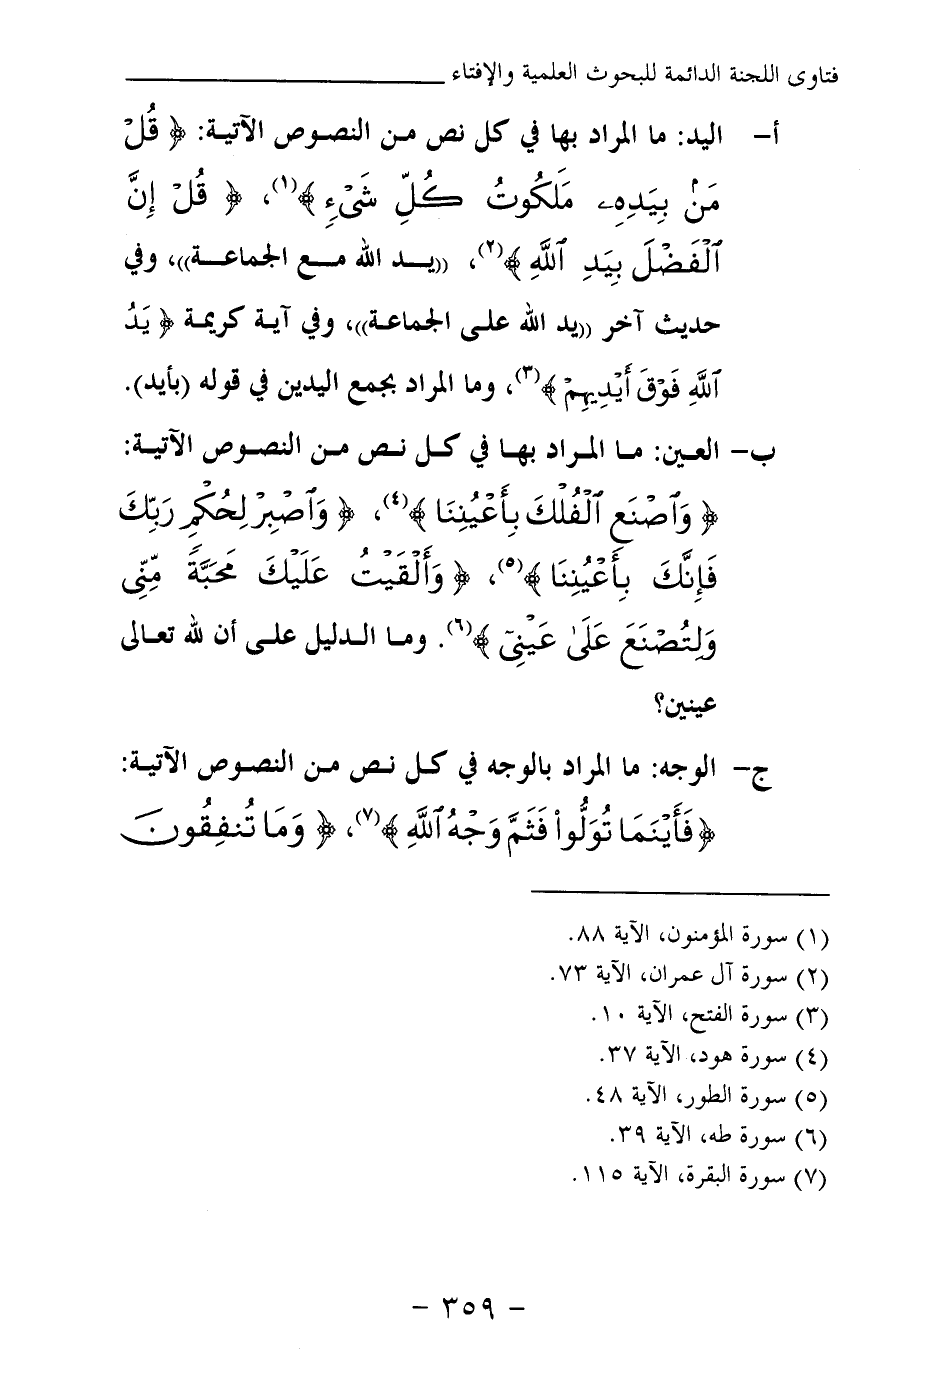 فتاوى اللجنة الدائمة للبحوث العلمية والإفتاء
أ- اليد: ما المراد بها في كل نص من النصوص الآتية: ﴿ قُلْ
مَنۢ بِيَدِهِۦ مَلَكُوتُ كُلِّ شَىْءٍ ﴾(١)، ﴿ قُلْ إِنَّ
ٱلْفَضْلَ بِيَدِ ٱللَّهِ ﴾(٢)، ((يد الله مع الجماعة))، وفي
حديث آخر ((يد الله على الجماعة))، وفي آية كريمة ﴿ يَدُ
ٱللَّهِ فَوْقَ أَيْدِيهِمْ ﴾(٣)، وما المراد بجمع اليدين في قوله (بأيد).
ب- العين: ما المراد بها في كل نص من النصوص الآتية:
﴿ وَٱصْنَعِ ٱلْفُلْكَ بِأَعْيُنِنَا ﴾(٤)، ﴿ وَٱصْبِرْ لِحُكْمِ رَبِّكَ
فَإِنَّكَ بِأَعْيُنِنَا ﴾(٥)، ﴿ وَأَلْقَيْتُ عَلَيْكَ مَحَبَّةً مِّنِّى
وَلِتُصْنَعَ عَلَىٰ عَيْنِىٓ ﴾(٦). وما الدليل على أن لله تعالى
عينين؟
ج- الوجه: ما المراد بالوجه في كل نص من النصوص الآتية:
﴿ فَأَيْنَمَا تُوَلُّوا۟ فَثَمَّ وَجْهُ ٱللَّهِ ﴾(٧)، ﴿ وَمَا تُنفِقُونَ
(١) سورة المؤمنون، الآية ٨٨.
(٢) سورة آل عمران، الآية ٧٣.
(٣) سورة الفتح، الآية ١٠.
(٤) سورة هود، الآية ٣٧.
(٥) سورة الطور، الآية ٤٨.
(٦) سورة طه، الآية ٣٩.
(٧) سورة البقرة، الآية ١١٥.
- ٣٥٩ -